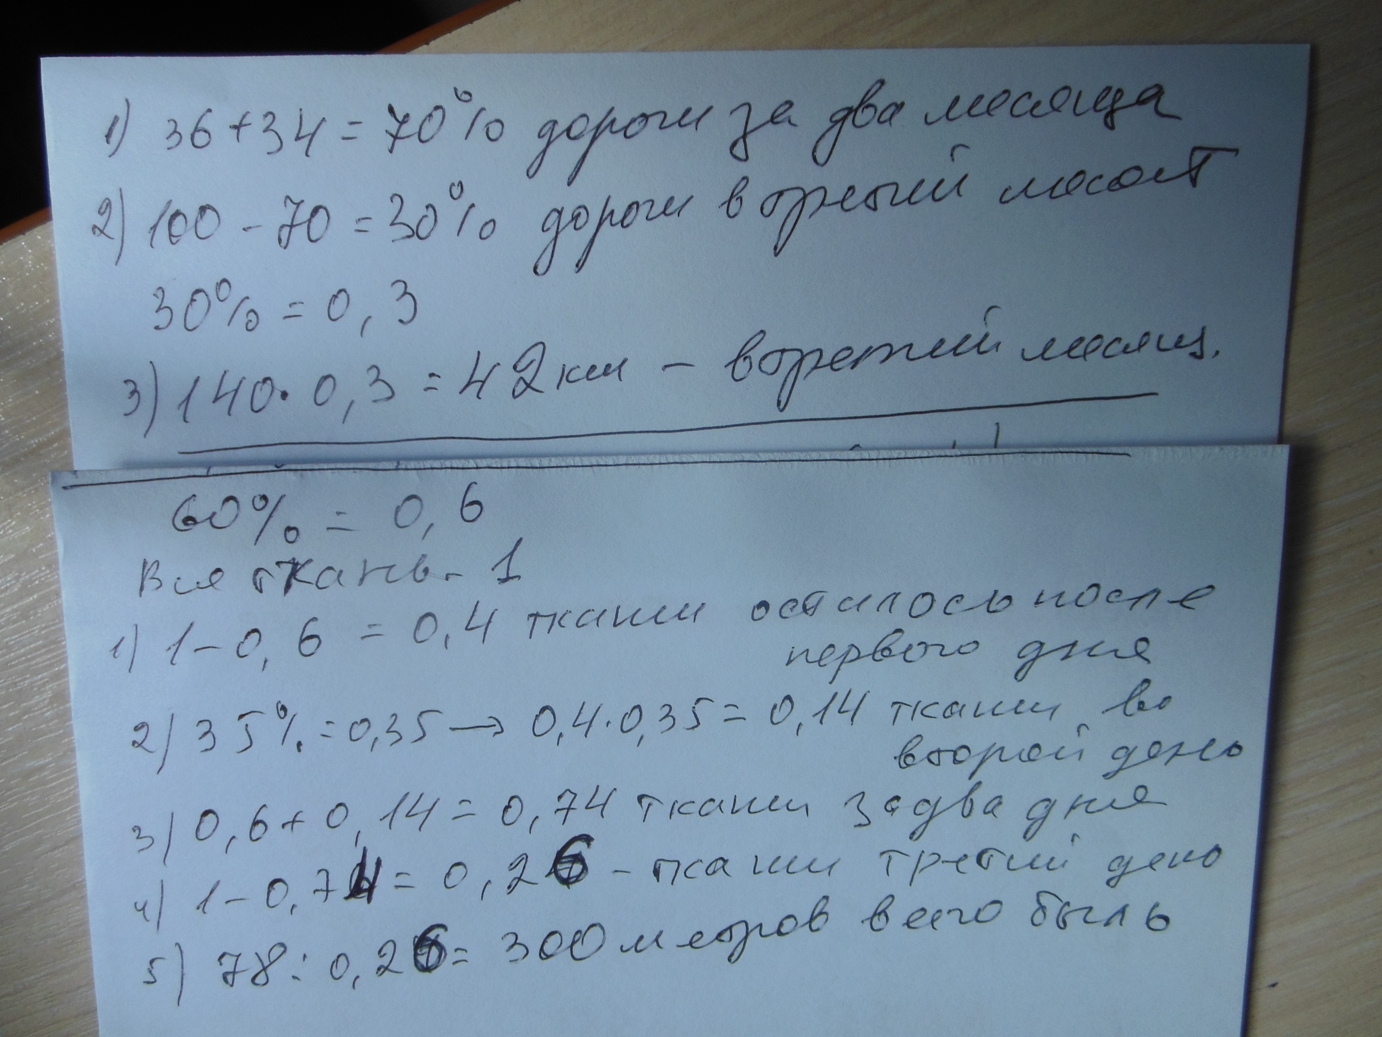 1) 36+34=70% дороги за два месяца
2) 100-70=30% дороги в третий месяц
30%=0,3
3) 140·0,3=42км - в третий месяц.
60% = 0,6
Вся ткань - 1
1) 1-0,6 = 0,4 ткани осталось после
первого дня
2) 35%=0,35 → 0,4·0,35=0,14 ткани во
второй день
3) 0,6+0,14=0,74 ткани за два дня
4) 1-0,74= 0,26 - ткани третий день
5) 78:0,26= 300 метров всего было